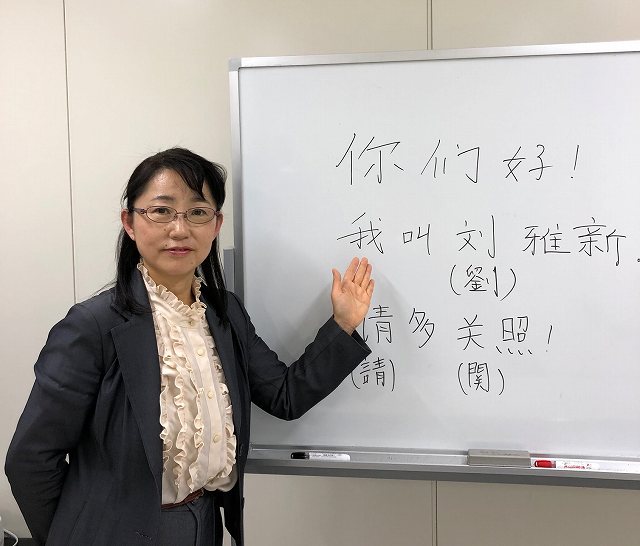 你们好!
我叫刘雅新.
(劉)
请多关照!
(請) (関)